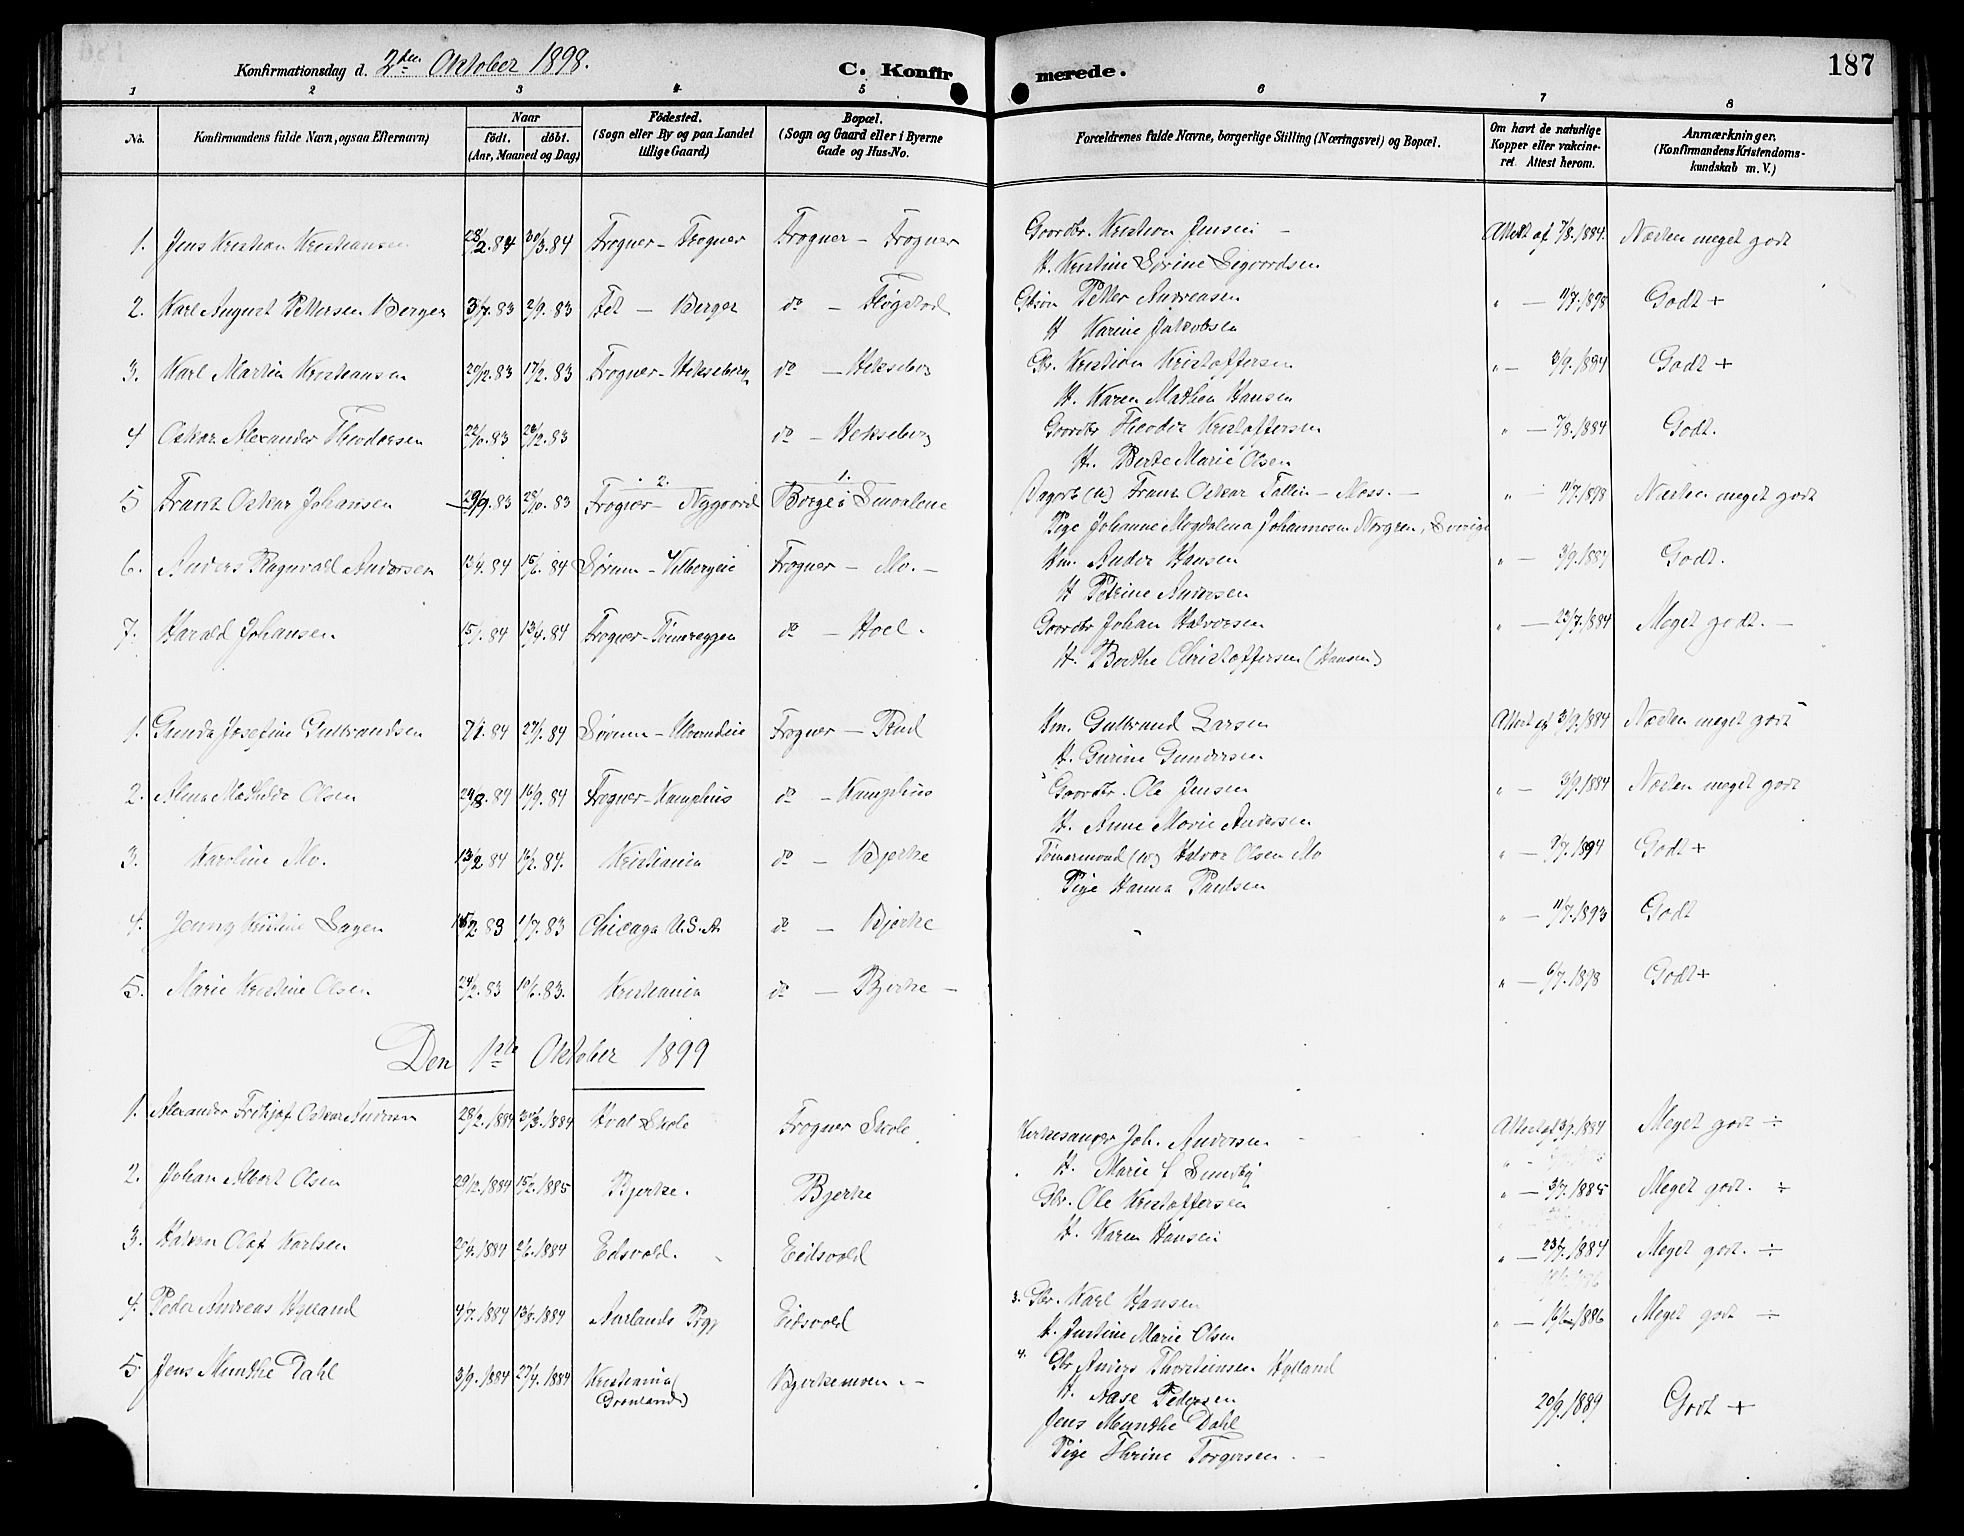 Konfirmationsdag d. 2den Oktober 1898.
C. Konfirmerede.
187
1 2 3 4 5 6 7 8
No.
Konfirmandens fulde Navn, ogsaa Efternavn)
Naar
født. døbt.
(Aar, Maaned og Dag)
Fødested.
(Sogn eller By og paa Landet
tillige Gaard)
Bopæl.
(Sogn og Gaard eller i Byerne
Gade og Hus-No.
Forældrenes fulde Navne, borgerlige Stilling (Næringsvei) og Bopæl.
Om havt de naturlige
Kopper eller vakcine-
ret Attest herom.
Anmærkninger.
(Konfirmandens Kristendoms-
kundskab m. V.)
1. Jens Kristian Kristiansen 28/2.84 30/3.84 Frogner - Frogner Frogner - Frogner Gaardbr. Kristian Jensen - Attest af 7/8.1884. Næsten meget godt
H. Kristine Sørine Sigvardsen
2. Karl August Pettersen Berger 3/7.83 2/9.83 Fet - Berger do - Petter Andreasen " - 11/7.1898 Godt +
H Karine Jakobsen
3. Karl Martin Kristiansen 20/2.83 17/2.83 Frogner - Hekseberg do - Hekseberg Gbr. Kristian Kristoffersen " - 3/9.1894 Godt +
H. Karen Mathea Hansen
4 Oskar Alexander Theodorsen 22/10.83 26/12.83 do - Hekseberg Gaardbr Theodor Kristoffersen " - 7/8.1884 Godt.
H. Berte Marie Olsen
5 Franz Oskar Johansen 29/9.83 28/10.83 2. Frogner - Nygaard 1. Borge i Smaalene Franz Oskar Tallin - Moss. - " - 11/7.1898 Næsten meget godt
Pige Johanne Magdalena Johannesen Norgren, Sverige
6. Anders Ragnvald Andersen 13/4.84 15/6.84 Sørum - Frogner - Mo. - Hm. Anders Hansen " - 3/9.1884 Godt.
H Petrine Andersen
7. Harald Johansen 15/1.84 13/4.84 Frogner - Tømteeggen do - Hoel. Gaardbr Johan Halvorsen " - 23/7.1884 Meget godt. -
H. Berthe Christoffersen (Hansen)
1. Gunda Josefine Gulbrandsen 7/1.84 27/1.84 Sørum - Frogner - Rud Hm. Gulbrand Larsen Attest af 3/9.1884 Næsten meget godt
H. Gurine Gundersen
2. Alma Mathilde Olsen 24/8.84 14/9.84 Frogner - Kamphus do - Kamphus Gaardbr. Ole Jensen " - 3/9.1884 Næsten meget godt
H. Anne Marie Andersen
3. Karoline Mo. 13/2.84 Kristiania do - Bjerke Tømermand Halvor Olsen Mo " - 9/7.1894 Godt +
Pige Hanna Paulsen
4. Jenny Kristine Hagen 15/2.83 1/7.83 Chicago U.S.A. do - Bjerke " - 11/7.1893 Godt
5. Marie Kristine Olsen 24/2.83 10/6.83. Kristiania do - Bjerke - " - 6/7.1898 Godt +
Den 1ste Oktober 1899
1. Alexander Fritjof Oskar Andersen 28/2.1884 30/3.1884 Hval Skole Frogner Skole Kirkesanger Joh. Andersen Attest af 3/9.1884 Meget godt ÷
H. Marie f Sundby
2. Johan Albert Olsen 29/12.1884 15/2.1885 Bjerke. Bjerke Gbr. Ole Kristoffersen " - 3/7.1885 Meget godt. ÷
H. Karen Hansen
3. Halvor Olaf Karlsen 20/4.1884 2/6.1884 Eidsvold. Eidsvold " - 23/7.1884 Meget godt. ÷
3. Gbr. Karl Hansen
H. Justine Marie Olsen
4. Peder Andreas Hylland 4/7.1884 13/8.1884 Aurlands Prgj Eidsvold " - 1886 Meget godt ÷
4. Gbr Anders Thorsteinsen Hylland
H. Aase Pedersen
5. Jens Munthe Dahl 3/9.1884 27/4.1884 Kristiania Bjerkemoen. - Jens Munthe Dahl 20/9.1889 Godt +
(Grønland)
Pige Thrine Torgersen. -